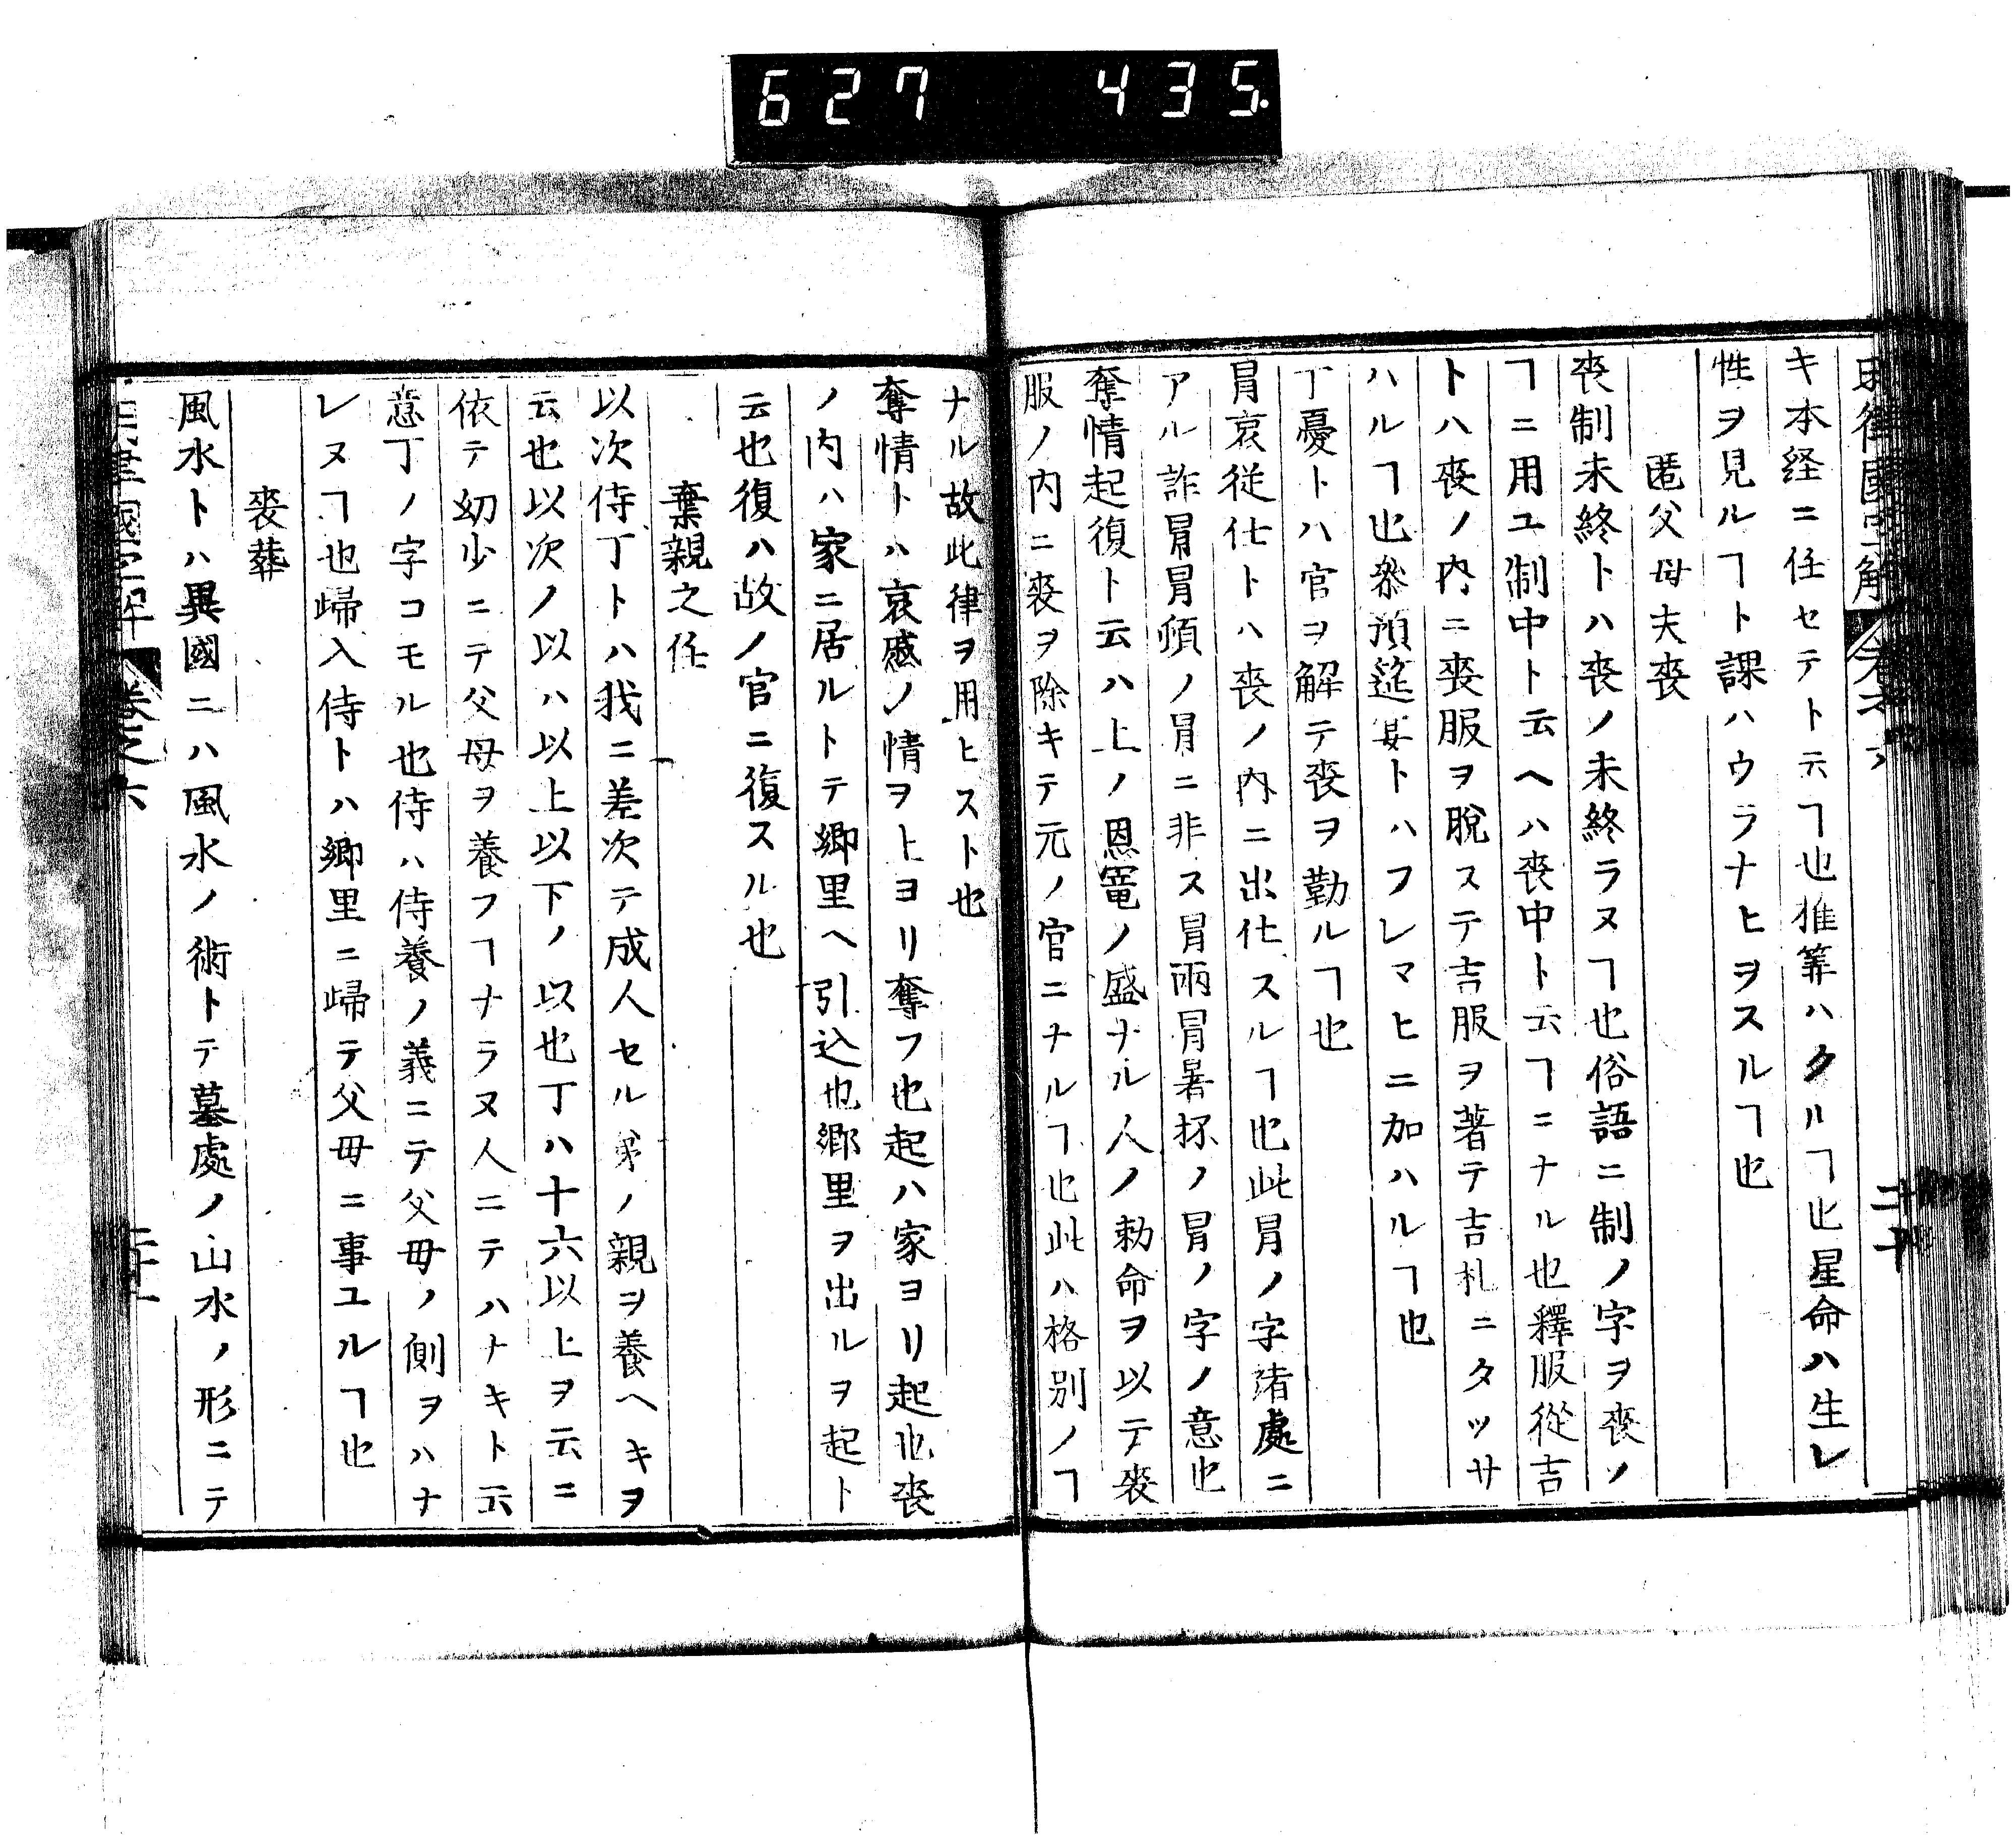 627 435
キ本経ニ任セテト云ヿ也推筭ハクルヿ也星命ハ生レ
性ヲ見ルヿト課ハウラナヒヲスルヿ也
匿父母夫喪
喪制未終トハ喪ノ未終ラヌヿ也俗語ニ制ノ字ヲ喪ノ
ヿニ用ユ制中ト云ヘハ喪中ト云ヿニナル也釋服從吉
トハ喪ノ内ニ喪服ヲ脫ステ吉服ヲ著テ吉札ニタツサ
ハルヿ也叅預筵宴トハフレマヒニ加ハルヿ也
丁憂トハ官ヲ解テ喪ヲ勤ルヿ也
冐哀従仕トハ喪ノ内ニ出仕スルヿ也此冐ノ字諸處ニ
アル詐冐冐頃ノ冐ニ非ス冐雨冐暑抔ノ冐ノ字ノ意也
奪情起復ト云ハ上ノ恩寵ノ盛ナル人ノ勅命ヲ以テ喪
服ノ内ニ喪ヲ除キテ元ノ官ニナルヿ也此ハ格別ノヿ
ナル故此律ヲ用ヒスト也
奪情トハ哀慼ノ情ヲ上ヨリ奪フ也起ハ家ヨリ起也喪
ノ内ハ家ニ居ルトテ郷里ヘ引込也郷里ヲ出ルヲ起ト
云也復ハ故ノ官ニ復スル也
棄親之任
以次侍丁トハ我ニ差次テ成人セル弟ノ親ヲ養ヘキヲ
云也以次ノ以ハ以上以下ノ以也丁ハ十六以上ヲ云ニ
依テ幼少ニテ父母ヲ養フヿナラヌ人ニテハナキト云
意丁ノ字コモル也侍ハ侍養ノ義ニテ父母ノ側ヲハナ
レヌヿ也歸入侍トハ郷里ニ歸テ父母ニ事ユルヿ也
喪葬
風水トハ異國ニハ風水ノ術トテ墓處ノ山水ノ形ニテ
卷之六